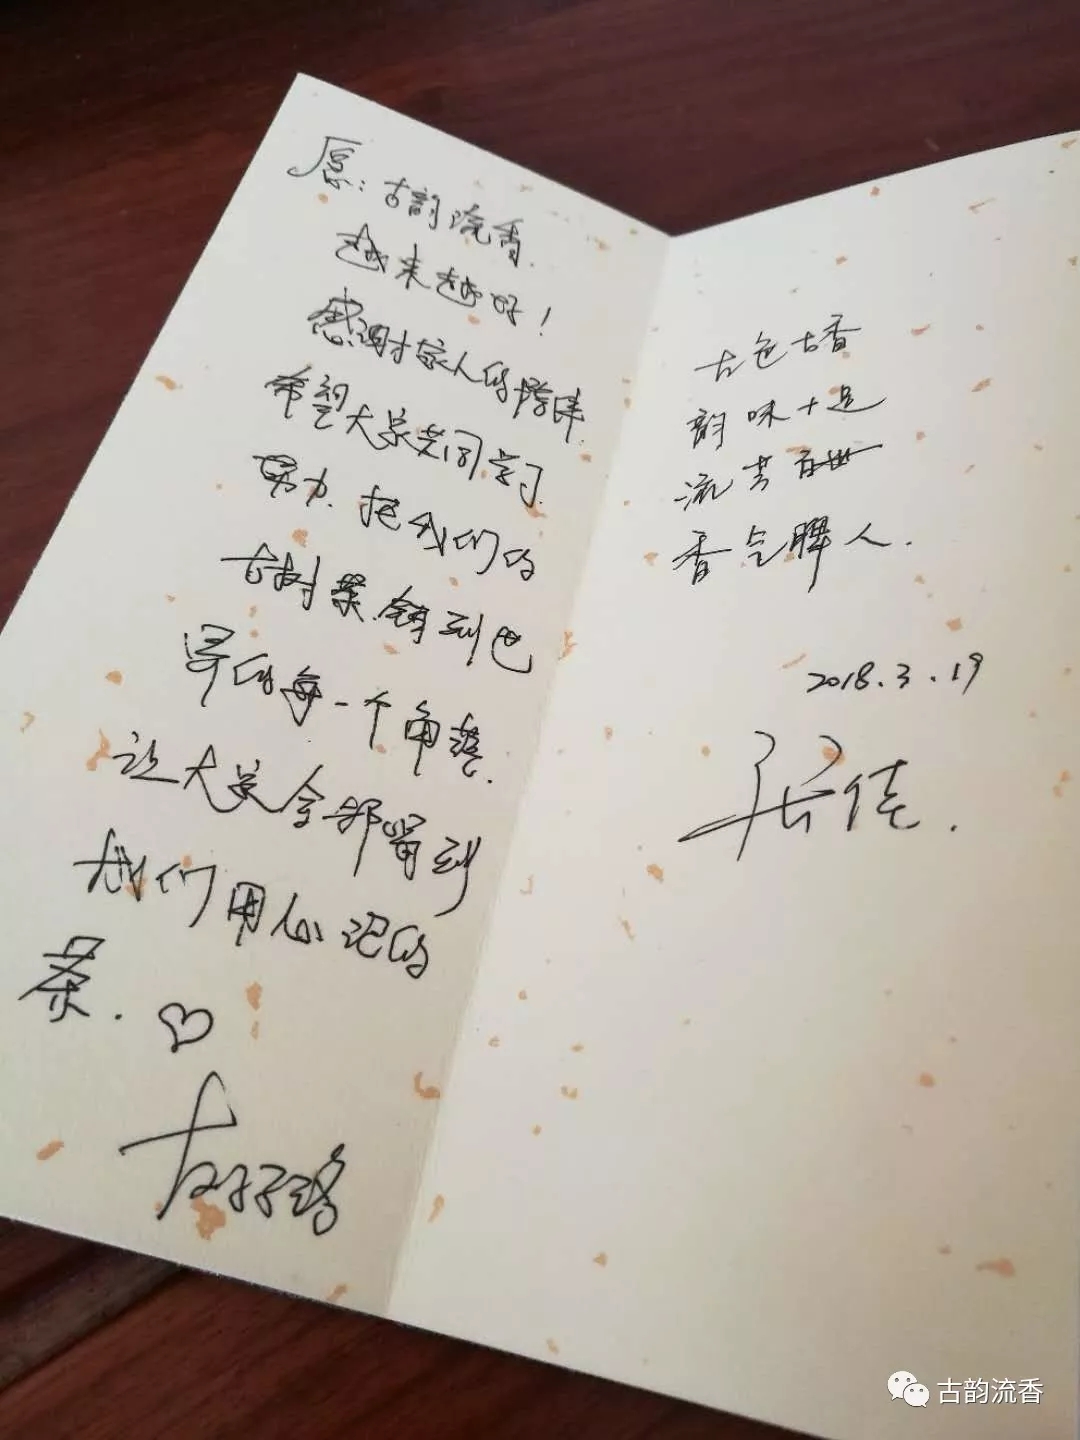 愿：古韵流香.
越来越好！
感谢才家人的陪伴.
希望大家共同学习
努力.把我们的
古树茶.销到世
界的每一个角落.
让大家全部留到
我们用心记的
茶.♡
古色古香
韵味十足
流芳百世
香气脾人.
2018.3.19
张佳.
古韵流香